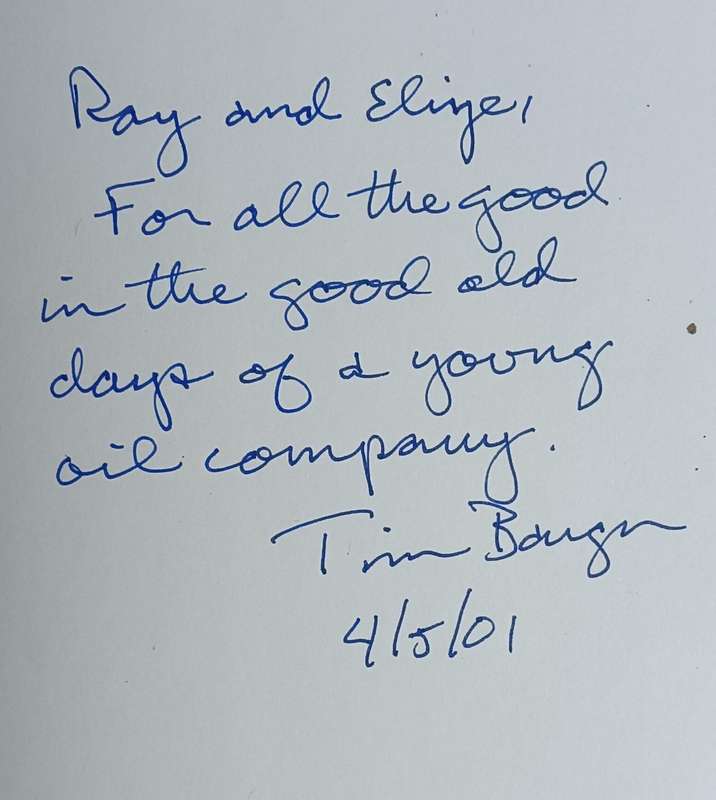 Ray and Elize,
For all the good
in the good old
days of a young
oil company.
Tim
4/5/01